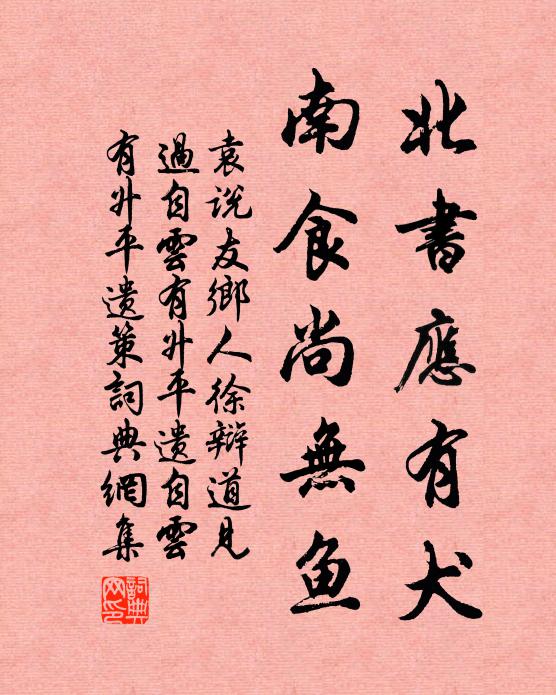 北書應有犬
南食尚無魚
袁说友鄉人徐辯道見
過自雲有升平遗自雲
有升平遗策詞典網集
詞典網印